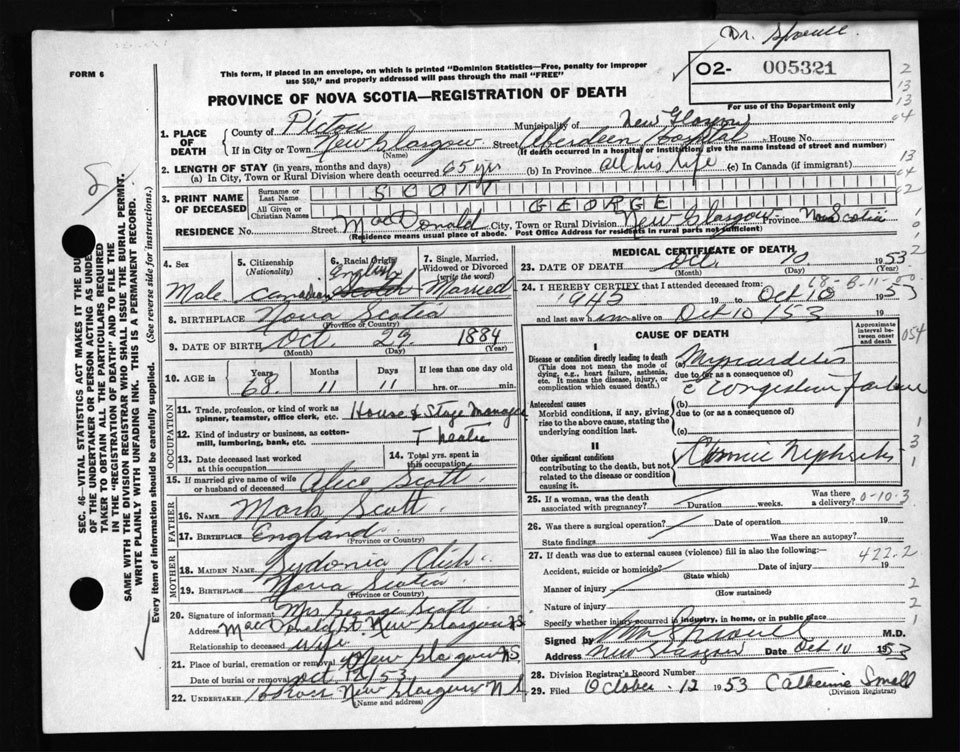 Dr. Sproull
FORM 6
This form, if placed in an envelope, on which is printed "Dominion Statistics—Free, penalty for improper
use $50," and properly addressed will pass through the mail "FREE"
O2- 005321
PROVINCE OF NOVA SCOTIA—REGISTRATION OF DEATH
For use of the Department only
1. PLACE OF DEATH
County of Pictou Municipality of New Glasgow
If in City or Town New Glasgow Street Aberdeen Hospital House No.
(Name) (If death occurred in a hospital or institution, give the name instead of street and number)
2. LENGTH OF STAY (in years, months and days)
(a) In City, Town or Rural Division where death occurred 65 yrs (b) In Province all his life (c) In Canada (if immigrant)
3. PRINT NAME OF DECEASED
Surname or Last Name SCOTT
All Given or Christian Names GEORGE
RESIDENCE No. Street MacDonald City, Town or Rural Division New Glasgow Province Nova Scotia
(Residence means usual place of abode. Post Office Address for residents in rural parts not sufficient)
4. Sex Male
5. Citizenship (Nationality) Canadian
6. Racial Origin English Scotch
7. Single, Married, Widowed or Divorced (write the word) Married
8. BIRTHPLACE Nova Scotia
(Province or Country)
9. DATE OF BIRTH Oct. 29. 1884
(Month) (Day) (Year)
10. AGE in Years 68 Months 11 Days 11 If less than one day old
hrs. or min.
OCCUPATION
11. Trade, profession, or kind of work as spinner, teamster, office clerk, etc. House & Stage Manager
12. Kind of industry or business, as cotton-mill, lumbering, bank, etc. Theatre
13. Date deceased last worked at this occupation
14. Total yrs. spent in this occupation
15. If married give name of wife or husband of deceased Alice Scott
FATHER
16. NAME Mark Scott
17. BIRTHPLACE England
(Province or Country)
MOTHER
18. MAIDEN NAME Lydonia
19. BIRTHPLACE Nova Scotia
(Province or Country)
20. Signature of informant Mrs George Scott
Address MacDonald St. New Glasgow NS
Relationship to deceased Wife
21. Place of burial, cremation or removal New Glasgow NS
Date of burial or removal Oct 12/53
22. UNDERTAKER Ross New Glasgow N.S.
(Name and address)
MEDICAL CERTIFICATE OF DEATH
23. DATE OF DEATH Oct 10 1953
(Month) (Day) (Year)
24. I HEREBY CERTIFY that I attended deceased from:
1945 19 to Oct 10 1953
and last saw him alive on Oct 10/53
CAUSE OF DEATH
Approximate interval between onset and death
I
Disease or condition directly leading to death
(This does not mean the mode of dying, e.g., heart failure, asthenia, etc. It means the disease, injury, or complication which caused death.)
(a) Myocarditis
due to (or as a consequence of)
c Congestive failure
Antecedent causes
Morbid conditions, if any, giving rise to the above cause, stating the underlying condition last.
(b)
due to (or as a consequence of)
(c)
II
Other significant conditions
contributing to the death, but not related to the disease or condition causing it.
Chronic Nephritis
25. If a woman, was the death associated with pregnancy? Duration weeks. Was there a delivery? 0-10-3
26. Was there a surgical operation? Date of operation 19
State findings Was there an autopsy?
27. If death was due to external causes (violence) fill in also the following:—
422.2
Accident, suicide or homicide? Date of injury 19
(State which)
Manner of injury
(How sustained)
Nature of injury
Specify whether injury occurred in industry, in home, or in public place
Signed by Sproull M.D.
Address New Glasgow Date Oct 10 1953
28. Division Registrar's Record Number
29. Filed October 12 1953 Catherine Small
(Division Registrar)
SEC. 46—VITAL STATISTICS ACT MAKES IT THE DU
OF THE UNDERTAKER OR PERSON ACTING AS UNDE
TAKER TO OBTAIN ALL THE PARTICULARS REQUIRED
IN THE "REGISTRATION OF DEATH" AND TO FILE THE
SAME WITH THE DIVISION REGISTRAR WHO SHALL ISSUE THE BURIAL PERMIT.
WRITE PLAINLY WITH UNFADING INK. THIS IS A PERMANENT RECORD.
Every item of information should be carefully supplied. (See reverse side for instructions.)
2
13
13
04
13
04
02
1
0
1
054
1
3
1
2
2
1